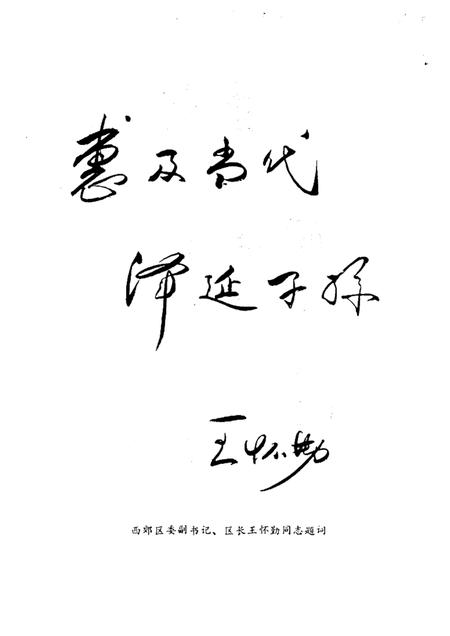 惠及当代
泽延子孙
王怀勤
西郊区委副书记、区长王怀勤同志题词